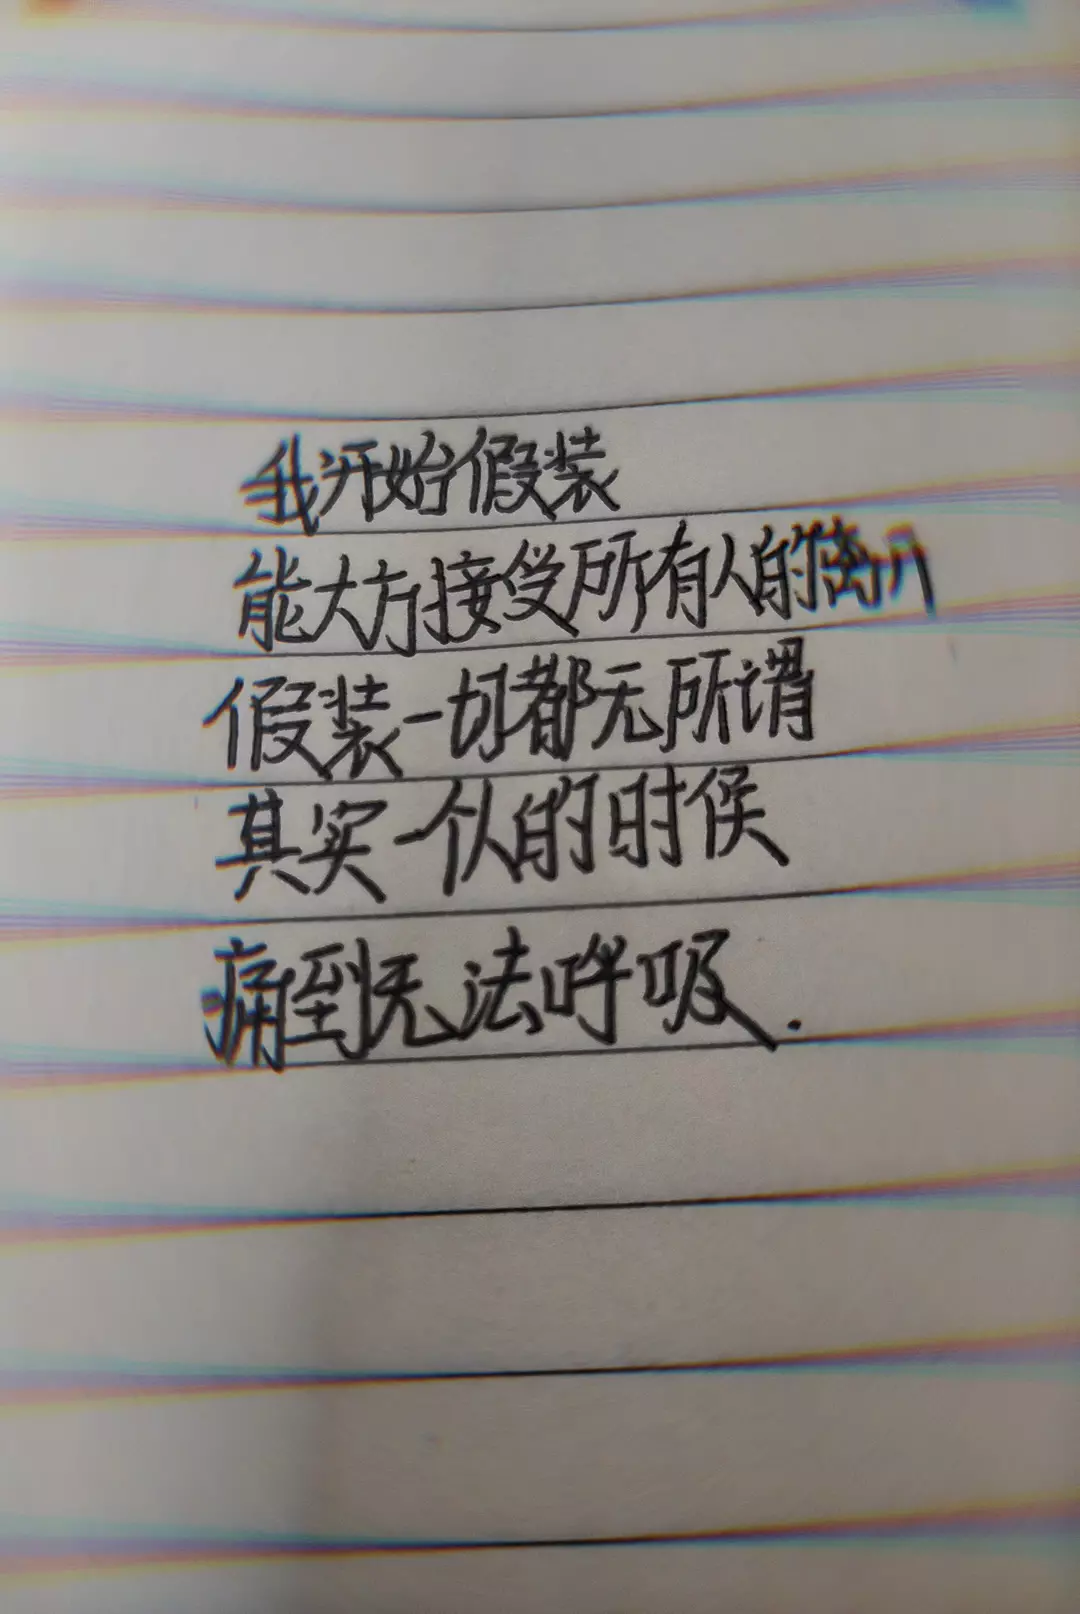 我开始假装
能大方接受所有人的离开
假装一切都无所谓
其实一个人的时候
痛到无法呼吸.